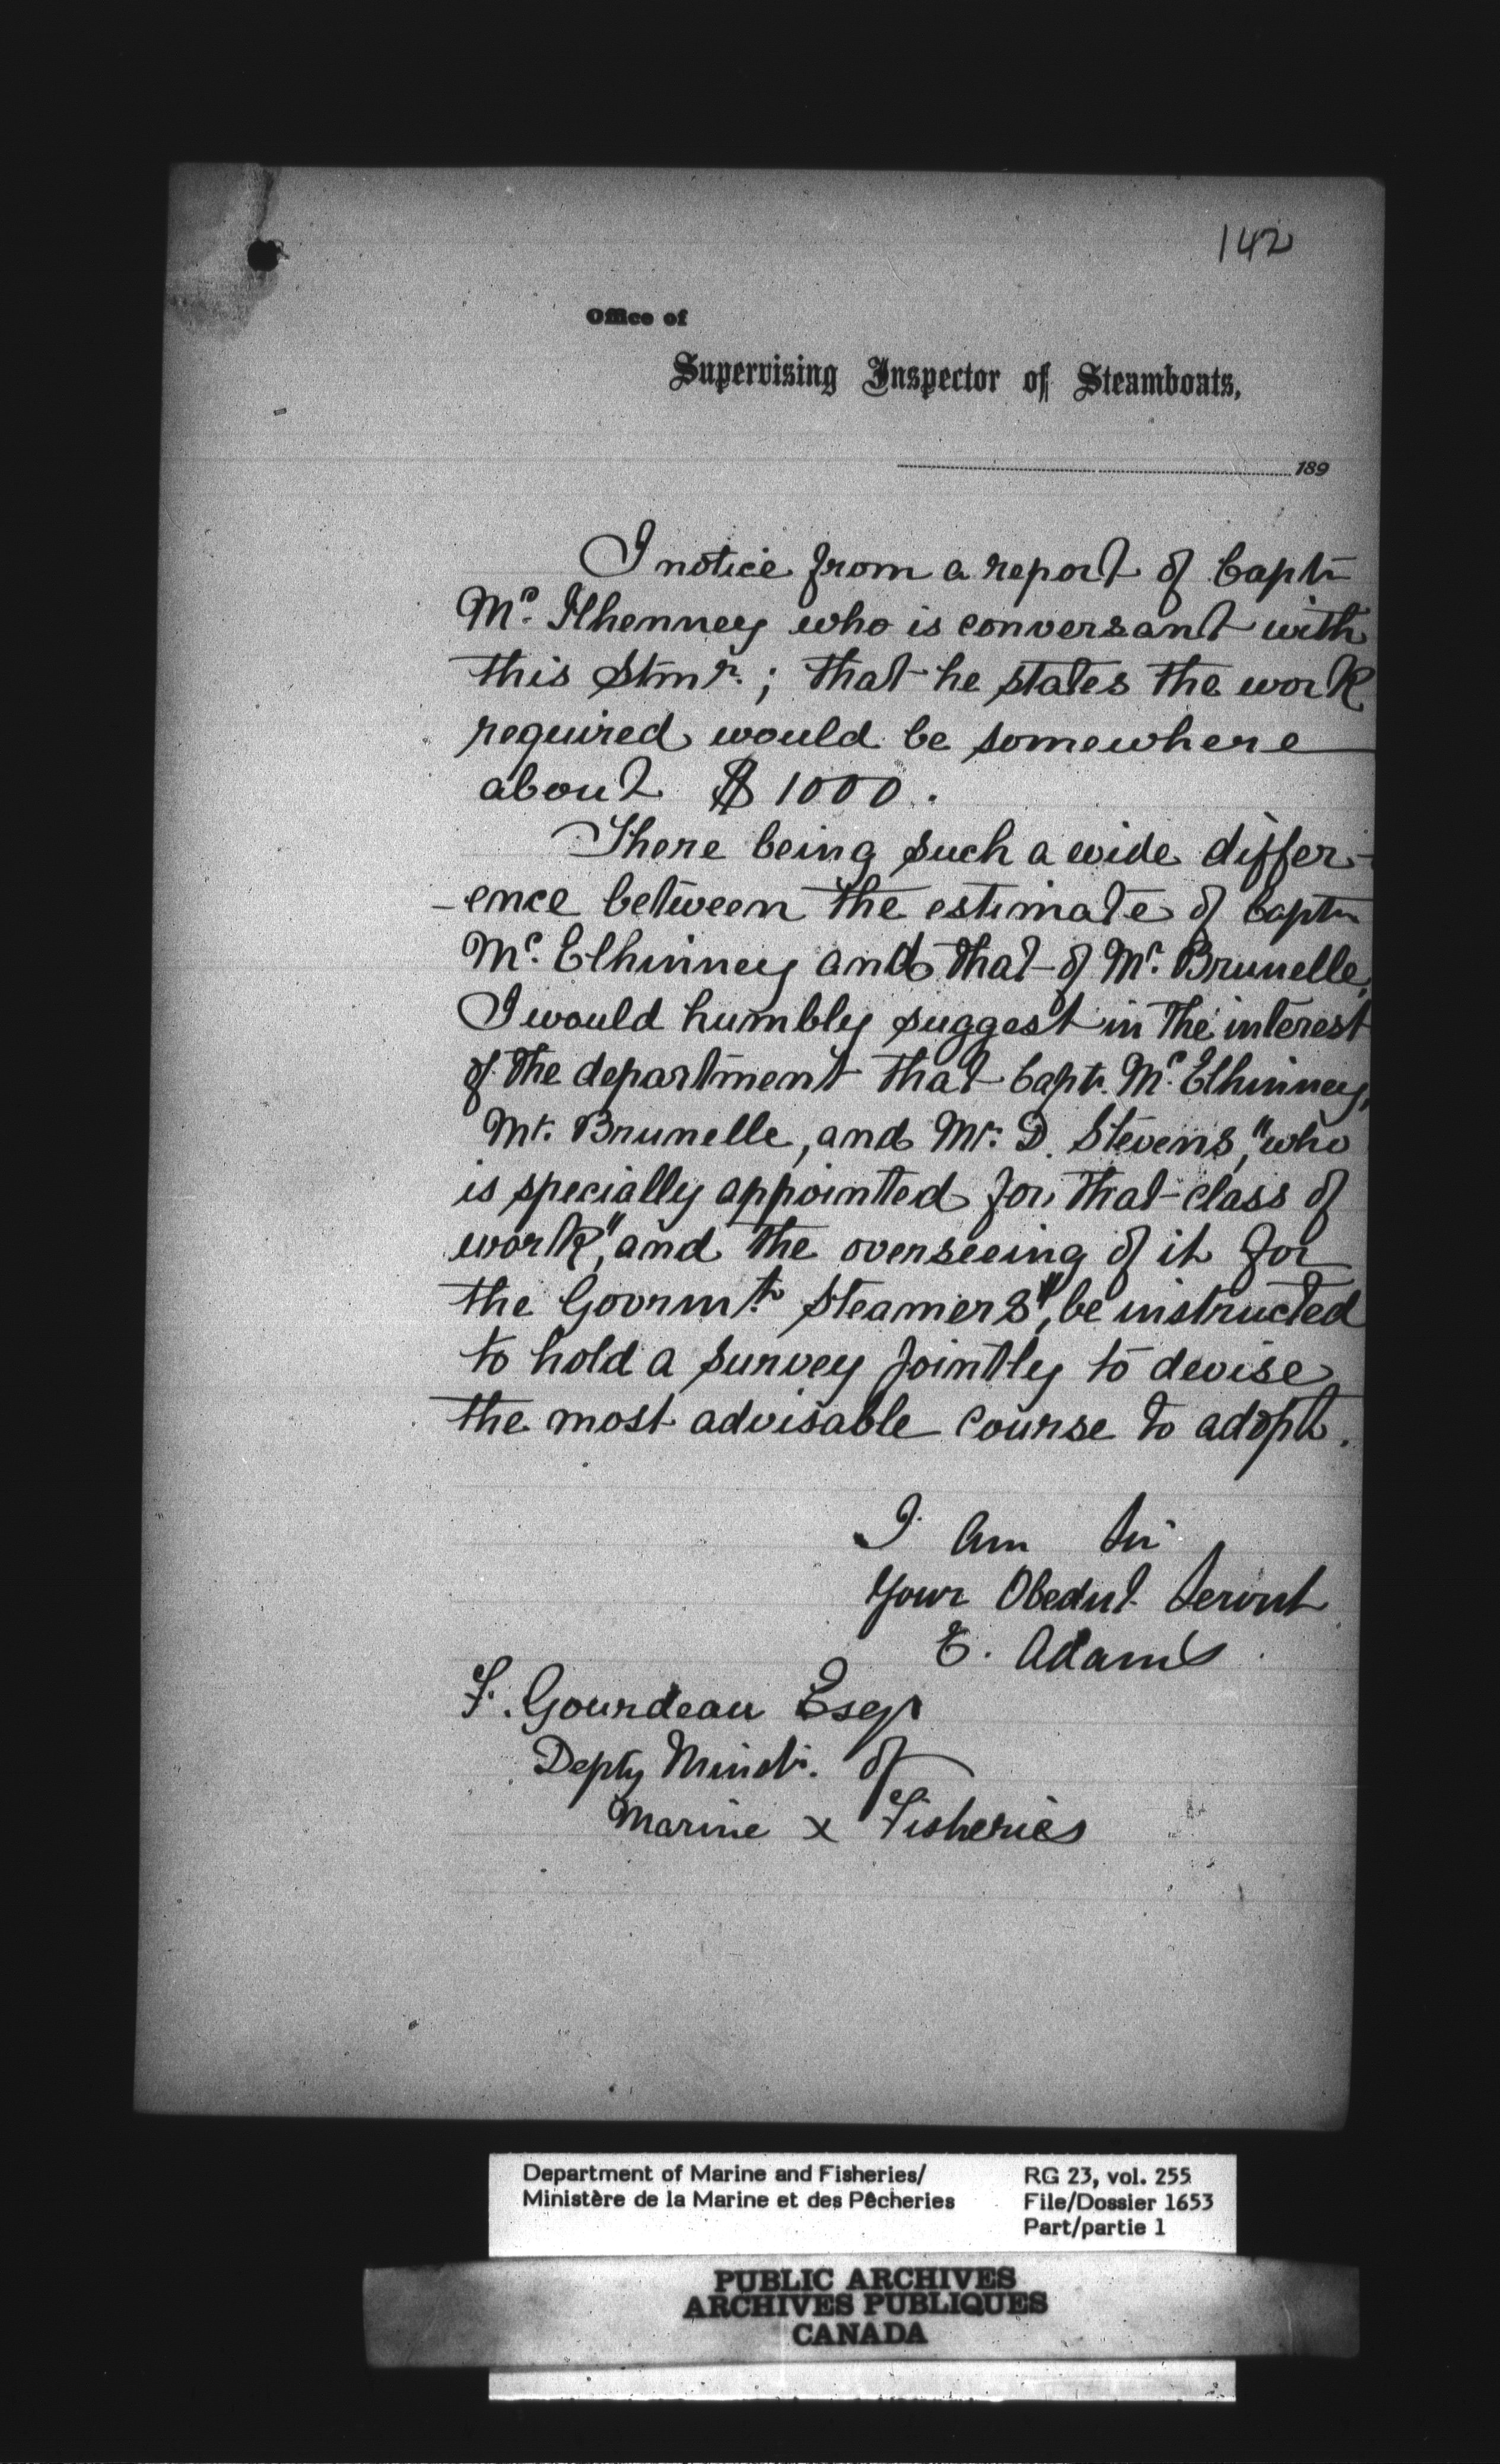 142
Office of
Supervising Inspector of Steamboats,
189
I notice from a report of Captn
Mc. Ilhenney who is conversant with
this Stmr. ; that he states the work
required would be somewhere
about $1000.
There being such a wide differ-
-ence between the estimate of Captn
Mc. Elhinney and that of Mr. Brunelle,
I would humbly suggest in the interest
of the department that Captn. Mc. Elhinney,
Mr. Brunelle, and Mr. D. Stevens, "who
is specially appointed for that class of
work", and the overseeing of it for
the Govrnmt. Steamers", be instructed
to hold a survey jointly to devise
the most advisable course to adopt.
I am Sir
Your Obednt Servnt
E. Adams
F. Gourdeau Esqr
Depty Minstr. of
Marine & Fisheries
Department of Marine and Fisheries/ RG 23, vol. 255
Ministère de la Marine et des Pêcheries File/Dossier 1653
Part/partie 1
PUBLIC ARCHIVES
ARCHIVES PUBLIQUES
CANADA